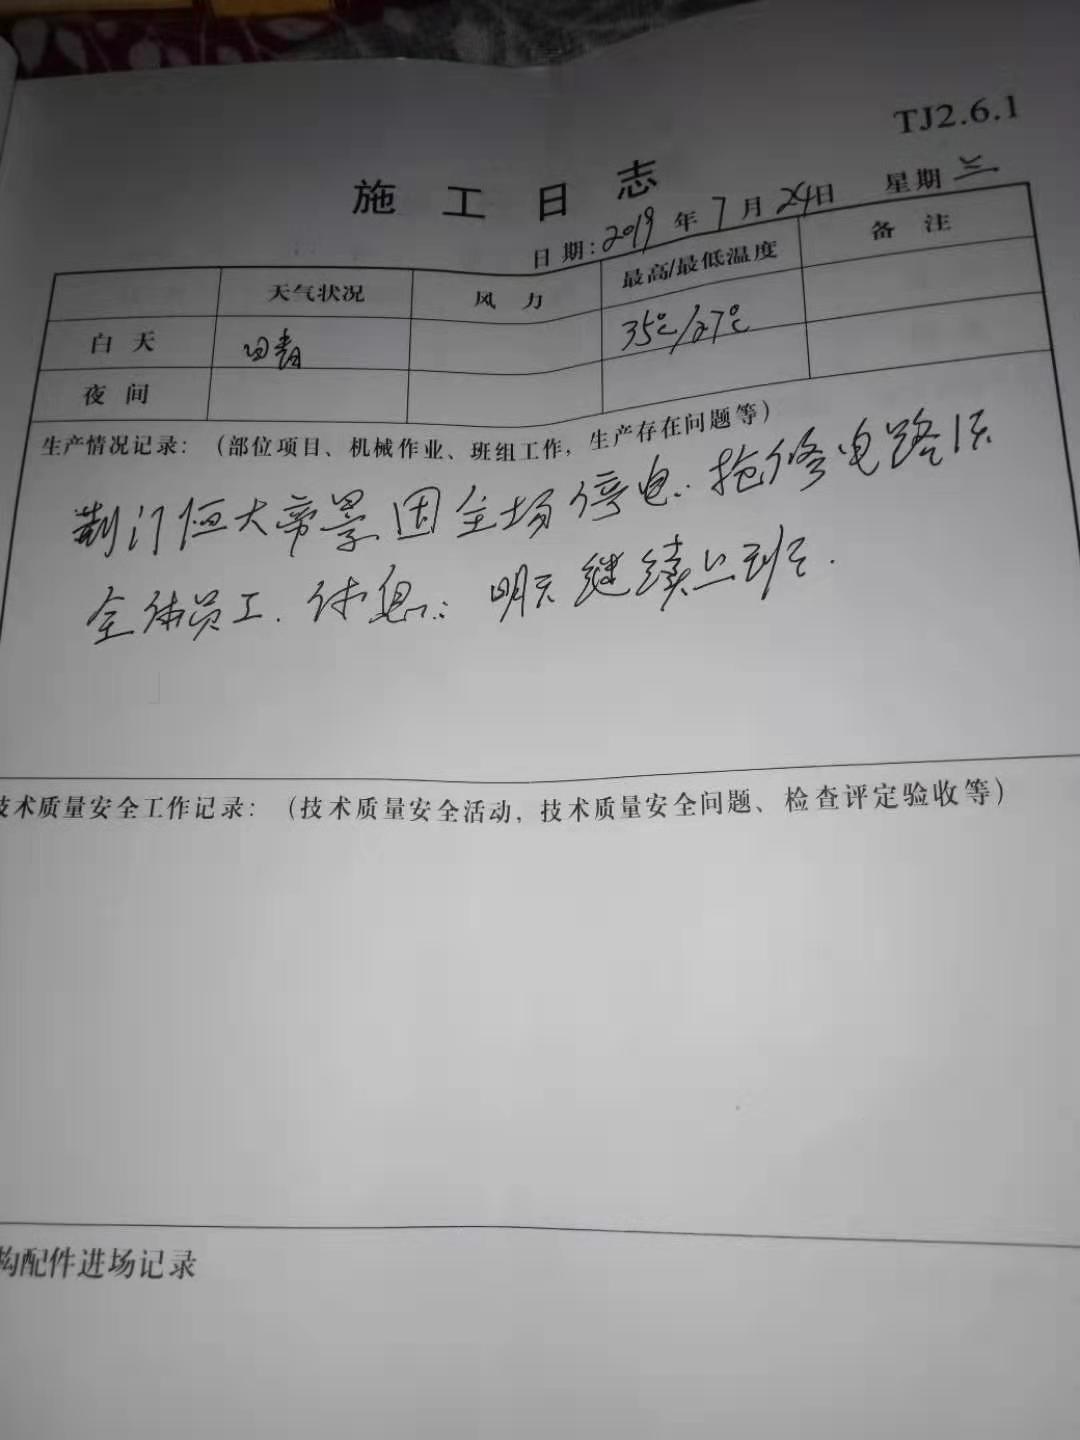 TJ2.6.1
施工日志
日期:2019年7月24日 星期三
天气状况 风力 最高/最低温度 备注
白天 晴 35℃/27℃
夜间
生产情况记录:(部位项目、机械作业、班组工作,生产存在问题等)
荆门恒大帝景因全场停电∴抢修电路
全体员工.休息∴明天继续上班.
技术质量安全工作记录:(技术质量安全活动,技术质量安全问题、检查评定验收等)
构配件进场记录